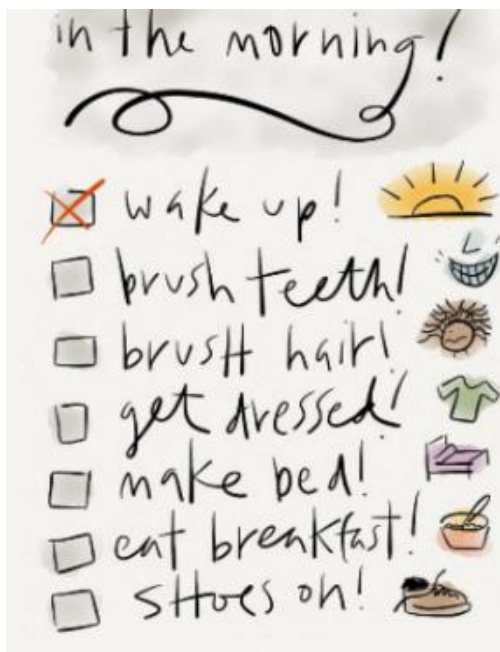 in the morning!
wake up!
brush teeth!
brusH hair!
get dressed!
make bed!
eat breakfast!
sHoes on!